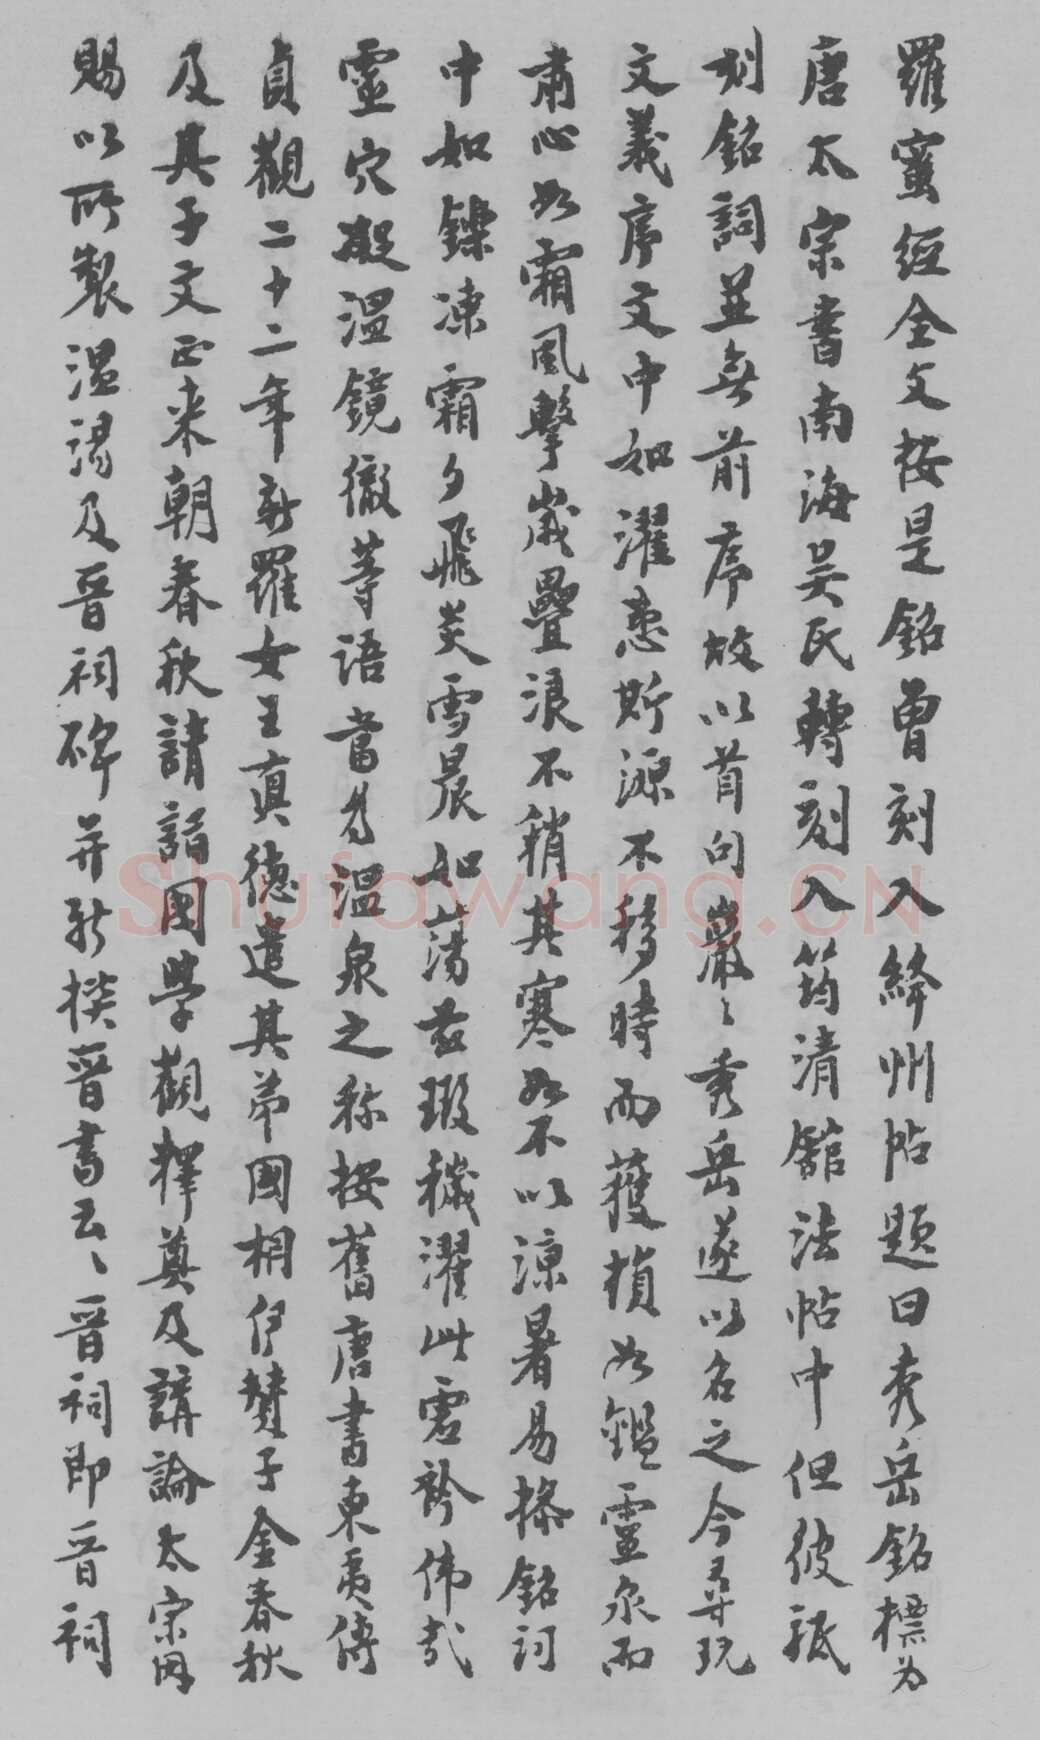 羅蜜經全文按是銘曾刻入絳州帖題曰秀岳銘標為
唐太宗書南海吴氏轉刻入筠清館法帖中但彼祇
刻銘詞並無前序故以首句巖〻秀岳遂以名之今尋玩
文義序文中如濯患斯源不移時而獲損如鑑靈泉而
肅心如霜風擊歲疊浪不稍其寒如不以涼暑易操銘詞
中如鑠凍霜夕飛炎雪晨如蕩茲瑕穢濯此雰衿偉哉
靈穴凝溫鏡徹等語當為溫泉之称按舊唐書東夷傳
貞觀二十二年新羅女王真德遣其弟國相伊贊子金春秋
及其子文正来朝春秋請詣國學觀釋奠及講論太宗因
賜以所製溫湯及晉祠碑并新撰晉書云〻晉祠即晉祠
Shufawang.CN